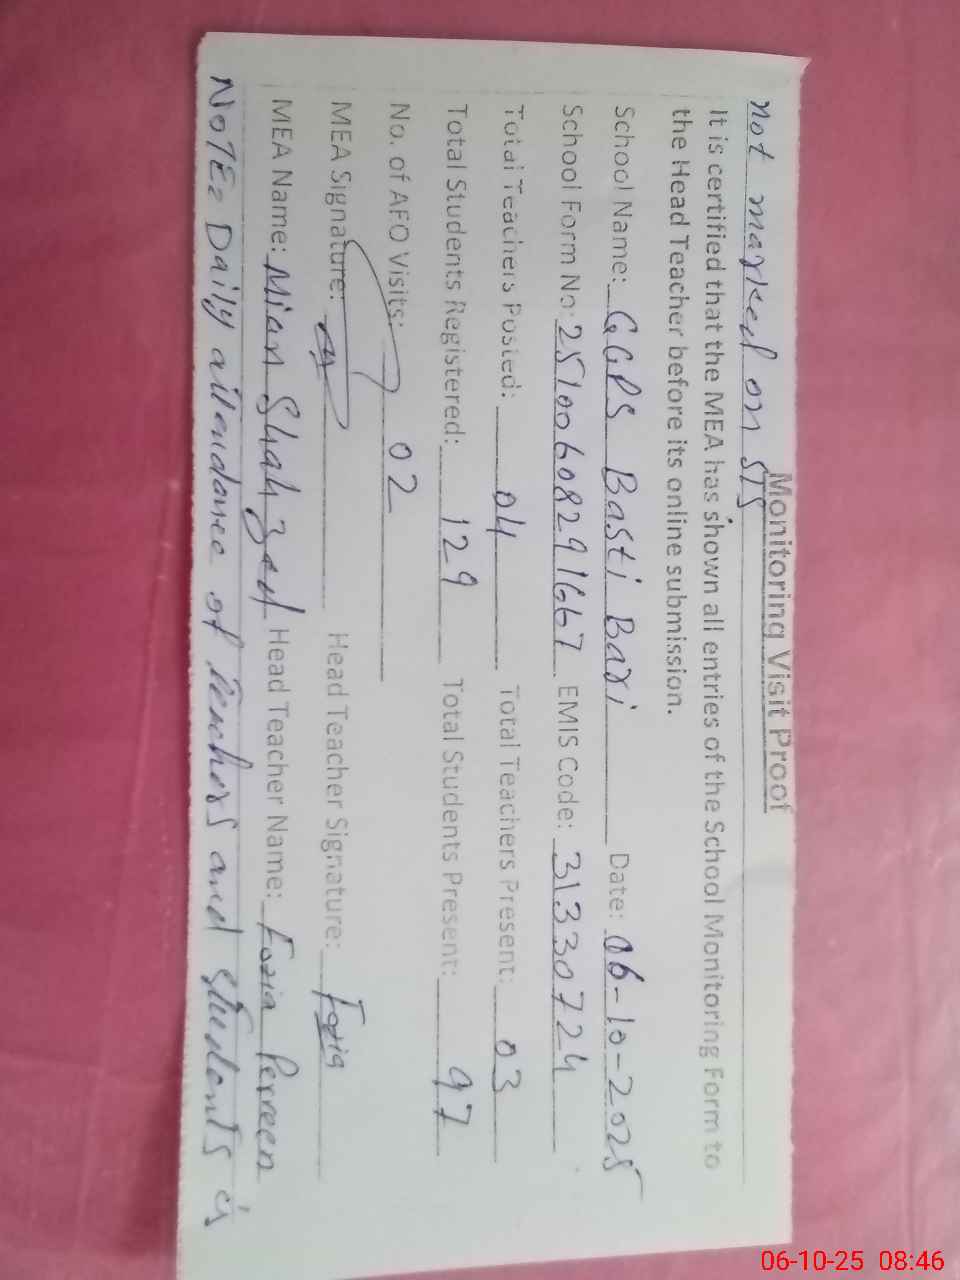 Monitoring Visit Proof
It is certified that the MEA has shown all entries of the School Monitoring Form to
the Head Teacher before its online submission.
School Name: GGPS Basti Bari Date: 06-10-2025
School Form No: 25100608291667 EMIS Code: 31330724
Total Teachers Posted: 04 Total Teachers Present: 03
Total Students Registered: 129 Total Students Present: 97
No. of AFO Visits: 02
MEA Signature: Head Teacher Signature: Fozia
MEA Name: Mian Shahzad Head Teacher Name: Fozia Perveen
NOTE: Daily attendance of teachers and students is
not marked on SIS
06-10-25 08:46